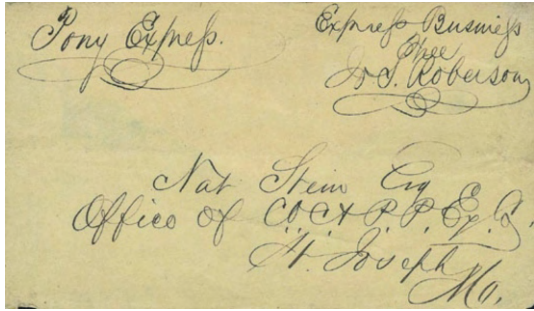 Pony Express.
Express Business
Free
Jno S. Roberson
Nat Stein Esq
Office of C.O.C & P. P. Ex. Co.
St. Joseph
Mo.